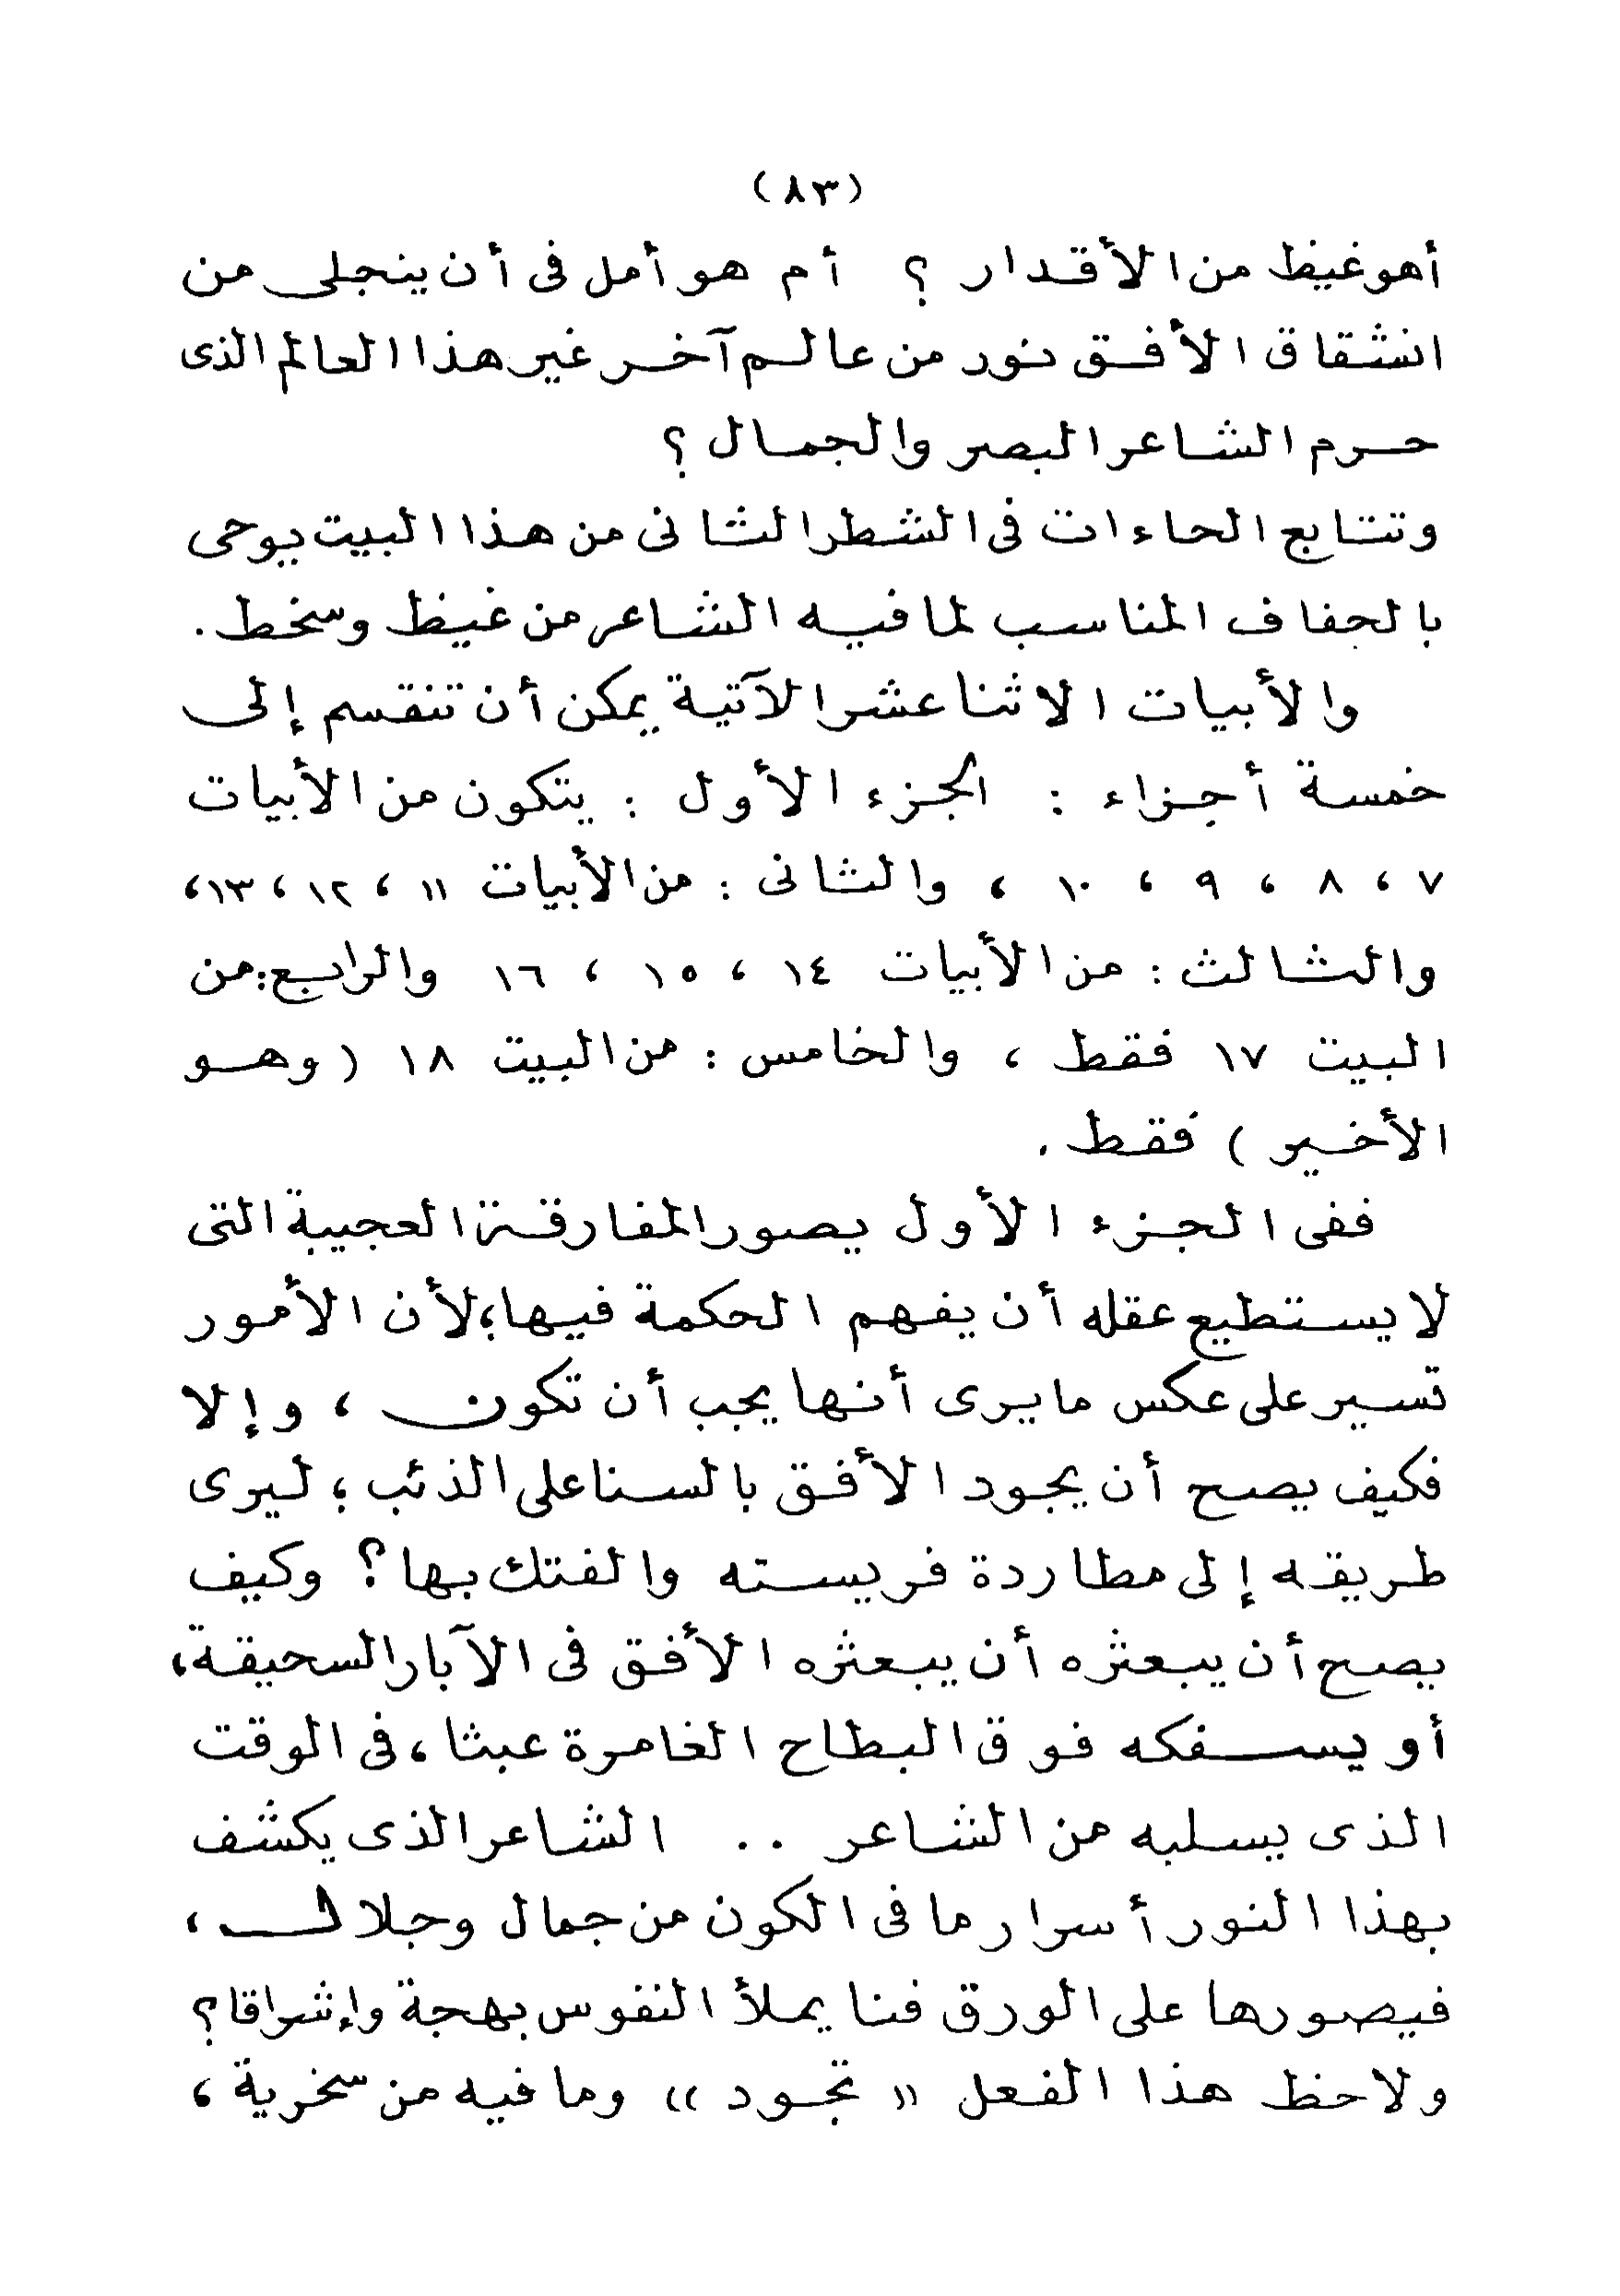 (٨٣)
أهو غيظ من الأقدار ؟ أم هو أمل فى أن ينجلى من
انشقاق الأفق نور من عالم آخر غير هذا العالم الذى
حرم الشاعر البصر والجمال ؟
وتتابع الحاءات فى الشطر الثانى من هذا البيت يوحى
بالجفاف المناسب لما فيه الشاعر من غيظ وسخط .
والأبيات الاثنا عشر الآتية يمكن أن تنقسم إلى
خمسة أجزاء : الجزء الأول : يتكون من الأبيات
٧ ، ٨ ، ٩ ، ١٠ ، والثانى : من الأبيات ١١ ، ١٢ ، ١٣ ،
والثالث : من الأبيات ١٤ ، ١٥ ، ١٦ والرابع : من
البيت ١٧ فقط ، والخامس : من البيت ١٨ ( وهو
الأخير ) فقط .
ففى الجزء الأول يصور المفارقة العجيبة التى
لا يستطيع عقله أن يفهم الحكمة فيها ؛ لأن الأمور
تسير على عكس ما يرى أنها يجب أن تكون ، وإلا
فكيف يصح أن يجود الأفق بالسنا على الذئب ؛ ليرى
طريقه إلى مطاردة فريسته والفتك بها ؟ وكيف
يصح أن يبعثره أن يبعثره الأفق فى الآبار السحيقة ،
أو يسفكه فوق البطاح الغامرة عبثا ، فى الوقت
الذى يسلبه من الشاعر .. الشاعر الذى يكشف
بهذا النور أسرار ما فى الكون من جمال وجلال ،
فيصورها على الورق فنا يملأ النفوس بهجة وإشراقا ؟
ولاحظ هذا الفعل « تجود » وما فيه من سخرية ،